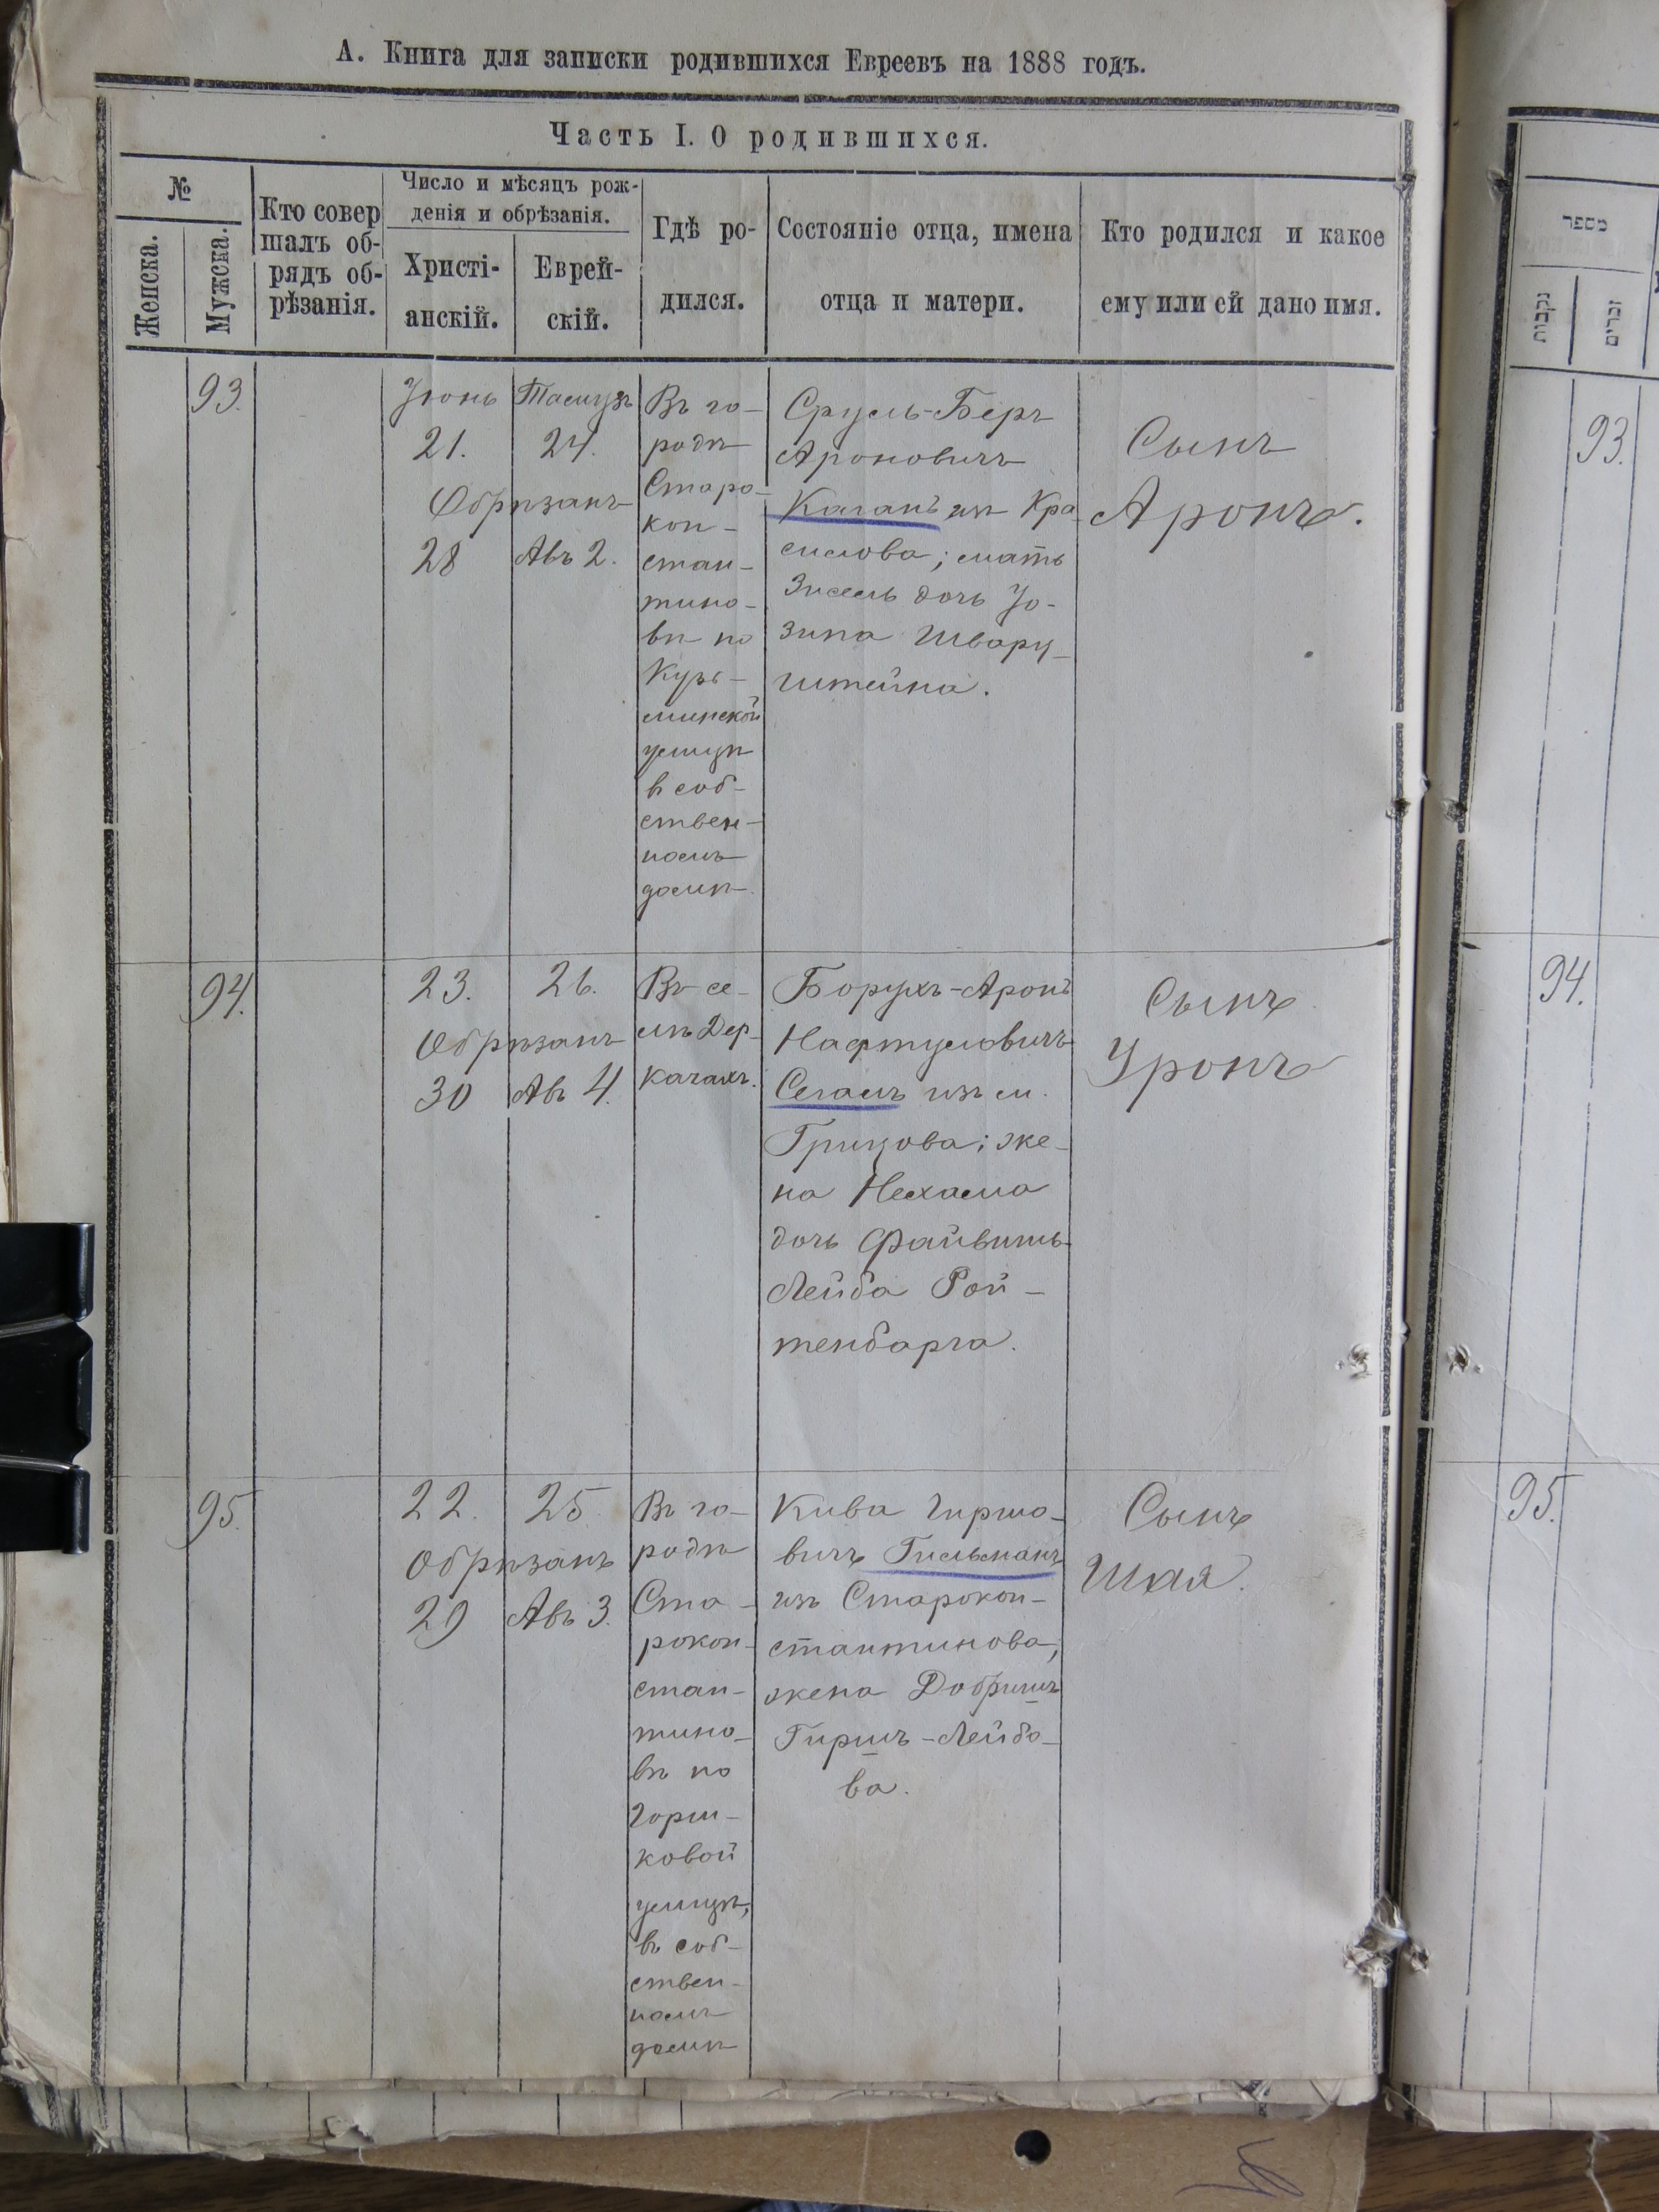 А. Книга для записки родившихся Евреевъ на 1888 годъ.
Часть I. О родившихся.
№
Женска.
Мужска.
Кто совер
шалъ об-
рядъ об-
рѣзанія.
Число и мѣсяцъ рож-
денія и обрѣзанія.
Христі-
анскій.
Еврей-
скій.
Гдѣ ро-
дился.
Состояніе отца, имена
отца и матери.
Кто родился и какое
ему или ей дано имя.
93.
Іюнь
21.
Тамузъ
24.
Обрѣзанъ
28
Авъ 2.
Въ го-
родѣ
Старо-
кон-
стан-
тино-
вѣ по
Кузь-
минской
улицѣ
в соб-
ствен-
номъ
домѣ.
Сруль-Беръ
Ароновичъ
Каганъ изъ Кра
силова; мать
Зисель дочь Іо-
зипа Шварц-
штейна.
Сынъ
Аронъ.
94.
23.
26.
Обрѣзанъ
30
Авъ 4.
Въ се-
лѣ Дер-
качахъ.
Борухъ-Аронъ
Нафтуловичъ
Сегалъ изъ м.
Грицова; же-
на Нехама
дочь Файвишъ-
Лейба Рой-
тенбарга.
Сынъ
Уронъ
95.
22.
25.
Обрѣзанъ
29
Авъ 3.
Въ го-
родѣ
Ста-
рокон-
стан-
тино-
вѣ по
Горш-
ковой
улицѣ,
въ соб-
ствен-
номъ
домѣ
Кива Гиршо-
вичъ Гильманъ
изъ Старокон-
стантинова,
жена Добришъ
Гиршъ-Лейбо-
ва.
Сынъ
Шая.
מספר
נקבות
זכרים
93.
94.
95.